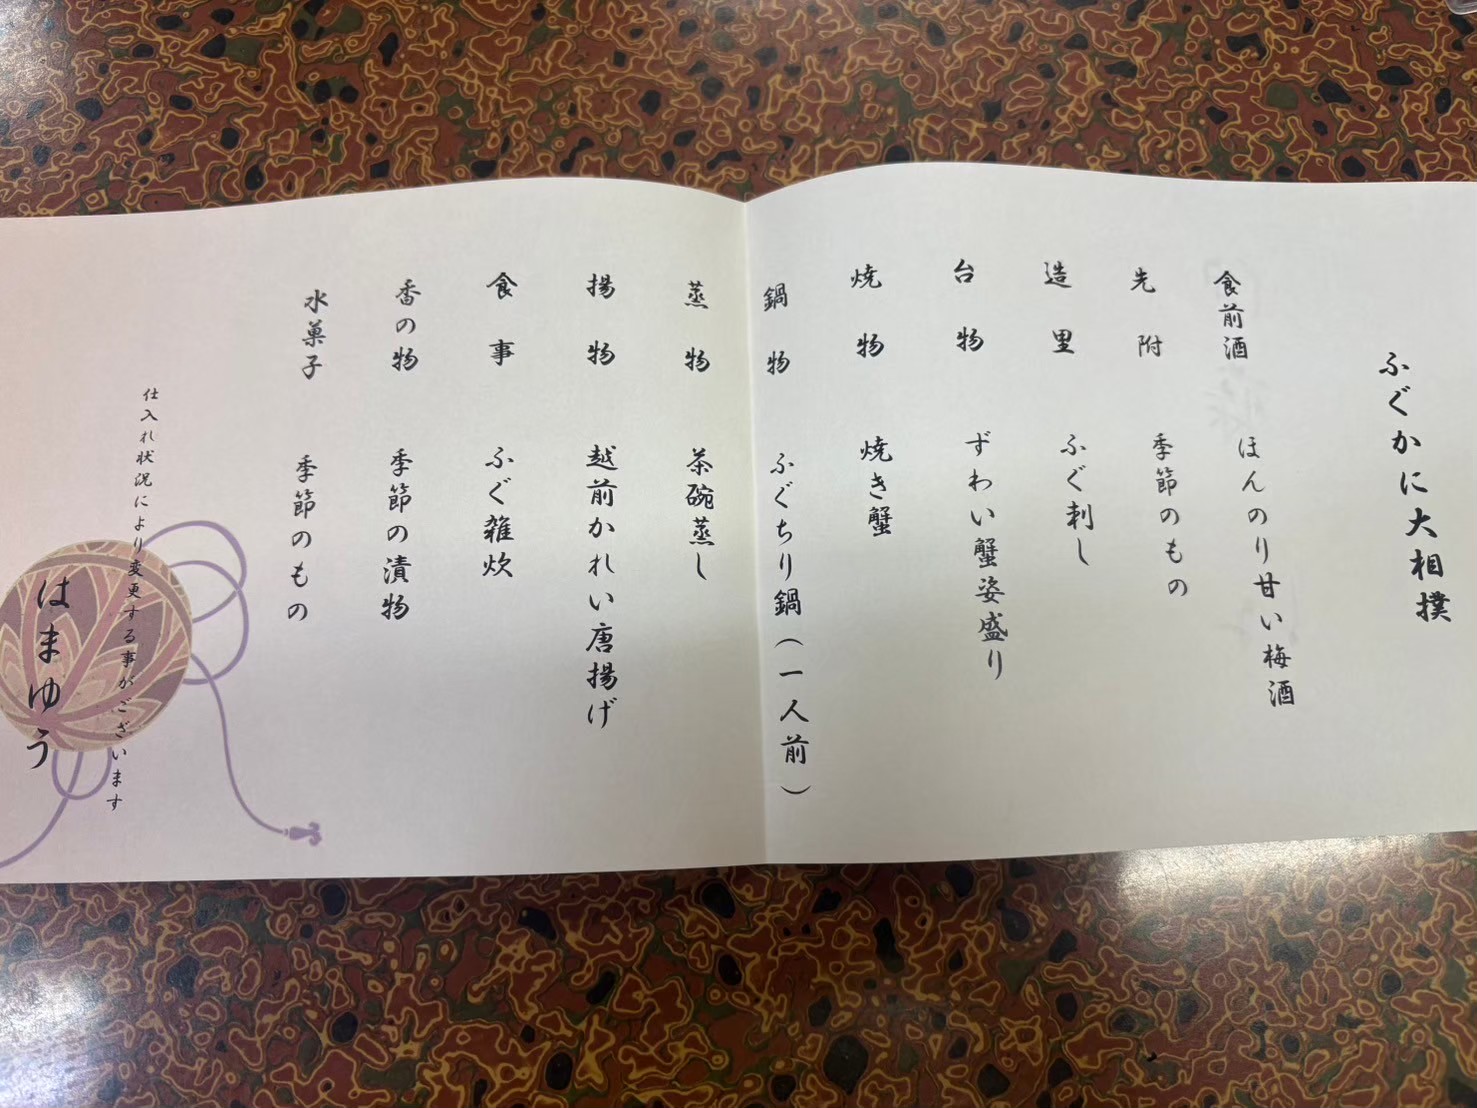 ふぐかに大相撲
食前酒　ほんのり甘い梅酒
先附　季節のもの
造里　ふぐ刺し
台物　ずわい蟹姿盛り
焼物　焼き蟹
鍋物　ふぐちり鍋（一人前）
蒸物　茶碗蒸し
揚物　越前かれい唐揚げ
食事　ふぐ雑炊
香の物　季節の漬物
水菓子　季節のもの
仕入れ状況により変更する事がございます
はまゆう